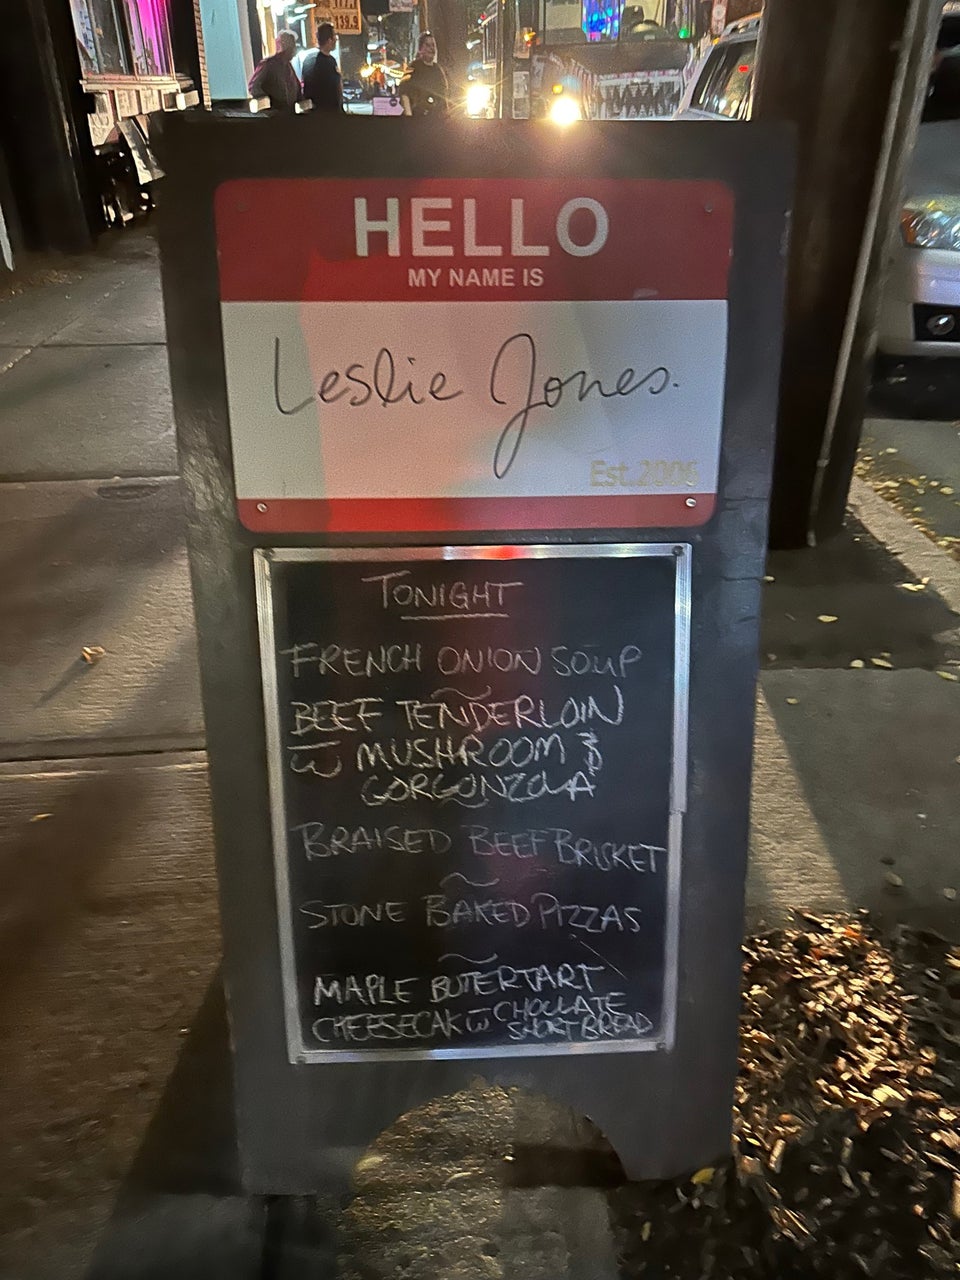 HELLO
MY NAME IS
Leslie Jones.
Est. 2006
TONIGHT
FRENCH ONION SOUP
BEEF TENDERLOIN
W MUSHROOM &
GORGONZOLA
BRAISED BEEF BRISKET
STONE BAKED PIZZAS
MAPLE BUTERTART
CHEESECAK W CHOCLATE
SHORTBREAD
139.9